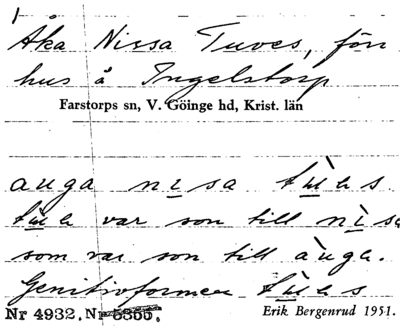 Åka Nissa Tuves, förr
hus å Ingelstorp
Farstorps sn, V. Göinge hd, Krist. län
auga nisa tuɐs
tuɐ var son till nisa
som var son till auga.
Genitivformen tuɐs
Nr 4932. Nr 5355. Erik Bergenrud 1951.